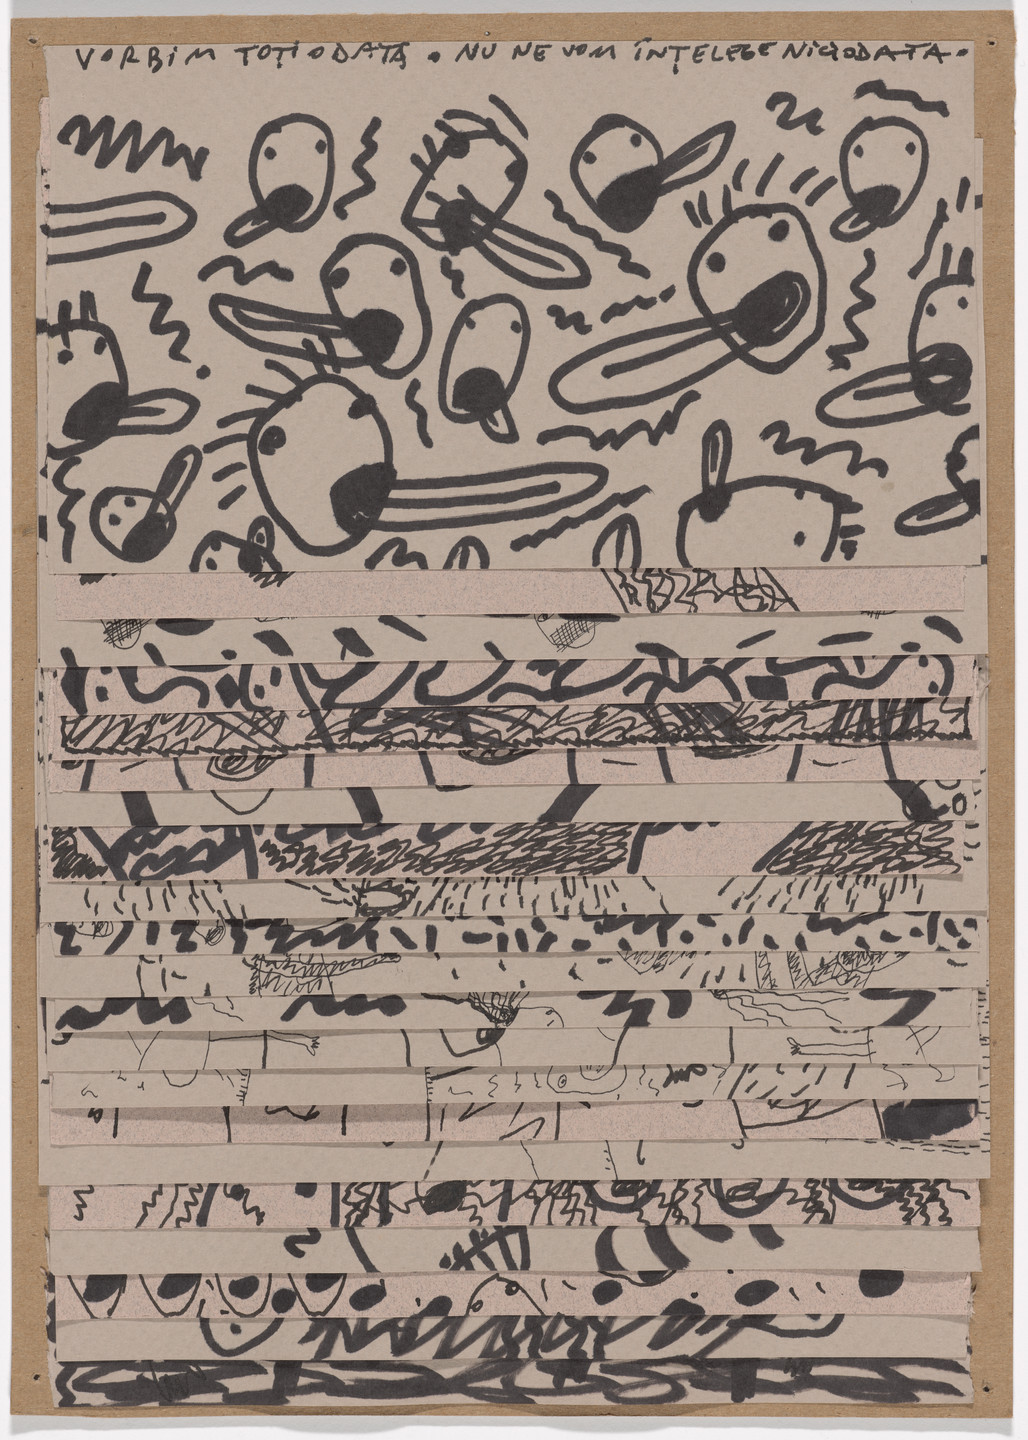 VORBIM TOȚI ODATĂ. NU NE VOM ÎNȚELEGE NICIODATA.